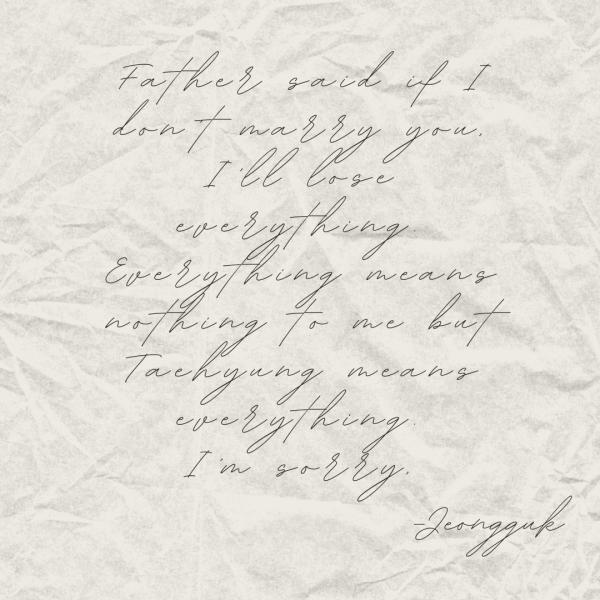 Father said if I
don't marry you.
I'll lose
everything.
Everything means
nothing to me but
Taehyung means
everything.
I'm sorry.
-Jeongguk